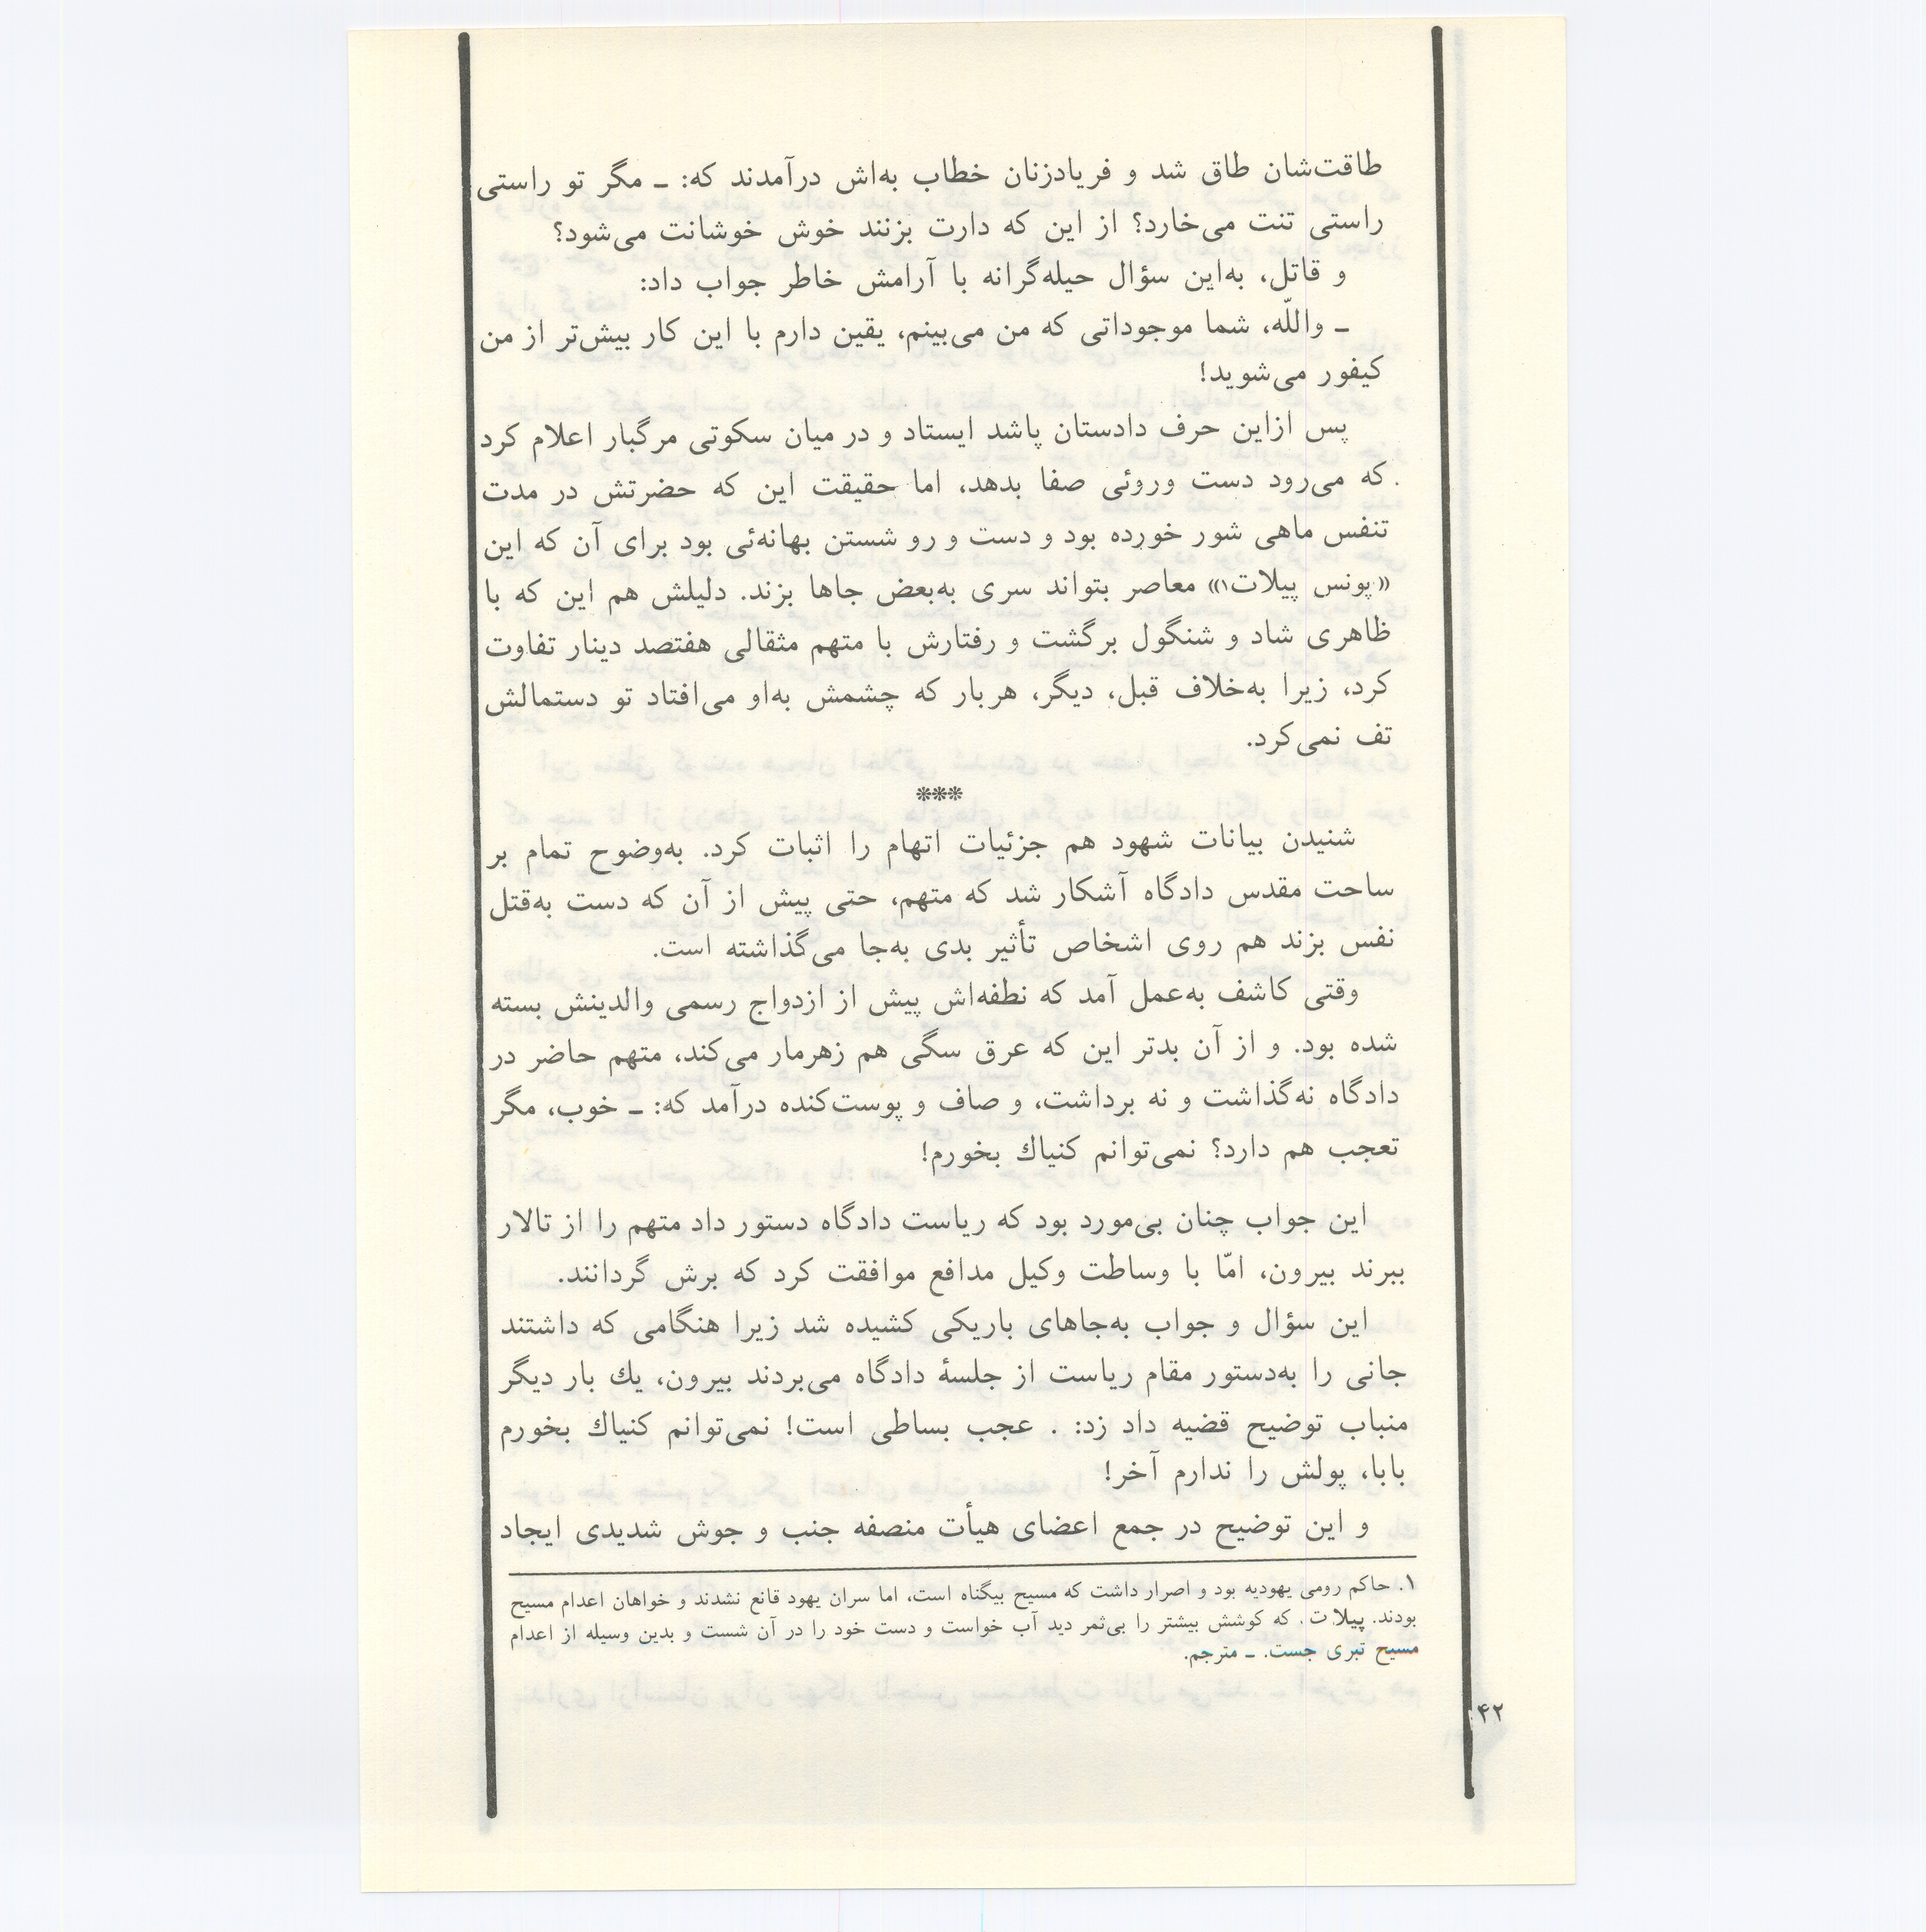 طاقت‌شان طاق شد و فریادزنان خطاب به‌اش درآمدند که: ـ مگر تو راستی
راستی تنت می‌خارد؟ از این که دارت بزنند خوش خوشانت می‌شود؟
و قاتل، به‌این سؤال حیله‌گرانه با آرامش خاطر جواب داد:
ـ واللّه، شما موجوداتی که من می‌بینم، یقین دارم با این کار بیش‌تر از من
کیفور می‌شوید!
پس ازاین حرف دادستان پاشد ایستاد و در میان سکوتی مرگبار اعلام کرد
که می‌رود دست وروئی صفا بدهد، اما حقیقت این که حضرتش در مدت
تنفس ماهی شور خورده بود و دست و رو شستن بهانه‌ئی بود برای آن که این
«پونس پیلات۱» معاصر بتواند سری به‌بعض جاها بزند. دلیلش هم این که با
ظاهری شاد و شنگول برگشت و رفتارش با متهم مثقالی هفتصد دینار تفاوت
کرد، زیرا به‌خلاف قبل، دیگر، هربار که چشمش به‌او می‌افتاد تو دستمالش
تف نمی‌کرد.
***
شنیدن بیانات شهود هم جزئیات اتهام را اثبات کرد. به‌وضوح تمام بر
ساحت مقدس دادگاه آشکار شد که متهم، حتی پیش از آن که دست به‌قتل
نفس بزند هم روی اشخاص تأثیر بدی به‌جا می‌گذاشته است.
وقتی کاشف به‌عمل آمد که نطفه‌اش پیش از ازدواج رسمی والدینش بسته
شده بود. و از آن بدتر این که عرق سگی هم زهرمار می‌کند، متهم حاضر در
دادگاه نه‌گذاشت و نه برداشت، و صاف و پوست‌کنده درآمد که: ـ خوب، مگر
تعجب هم دارد؟ نمی‌توانم کنیاك بخورم!
این جواب چنان بی‌مورد بود که ریاست دادگاه دستور داد متهم را از تالار
ببرند بیرون، امّا با وساطت وکیل مدافع موافقت کرد که برش گردانند.
این سؤال و جواب به‌جاهای باریکی کشیده شد زیرا هنگامی که داشتند
جانی را به‌دستور مقام ریاست از جلسهٔ دادگاه می‌بردند بیرون، یك بار دیگر
منباب توضیح قضیه داد زد: . عجب بساطی است! نمی‌توانم کنیاك بخورم
بابا، پولش را ندارم آخر!
و این توضیح در جمع اعضای هیأت منصفه جنب و جوش شدیدی ایجاد
۱. حاکم رومی یهودیه بود و اصرار داشت که مسیح بیگناه است، اما سران یهود قانع نشدند و خواهان اعدام مسیح
بودند. پیلات. که کوشش بیشتر را بی‌ثمر دید آب خواست و دست خود را در آن شست و بدین وسیله از اعدام
مسیح تبری جست. ـ مترجم.
۴۲